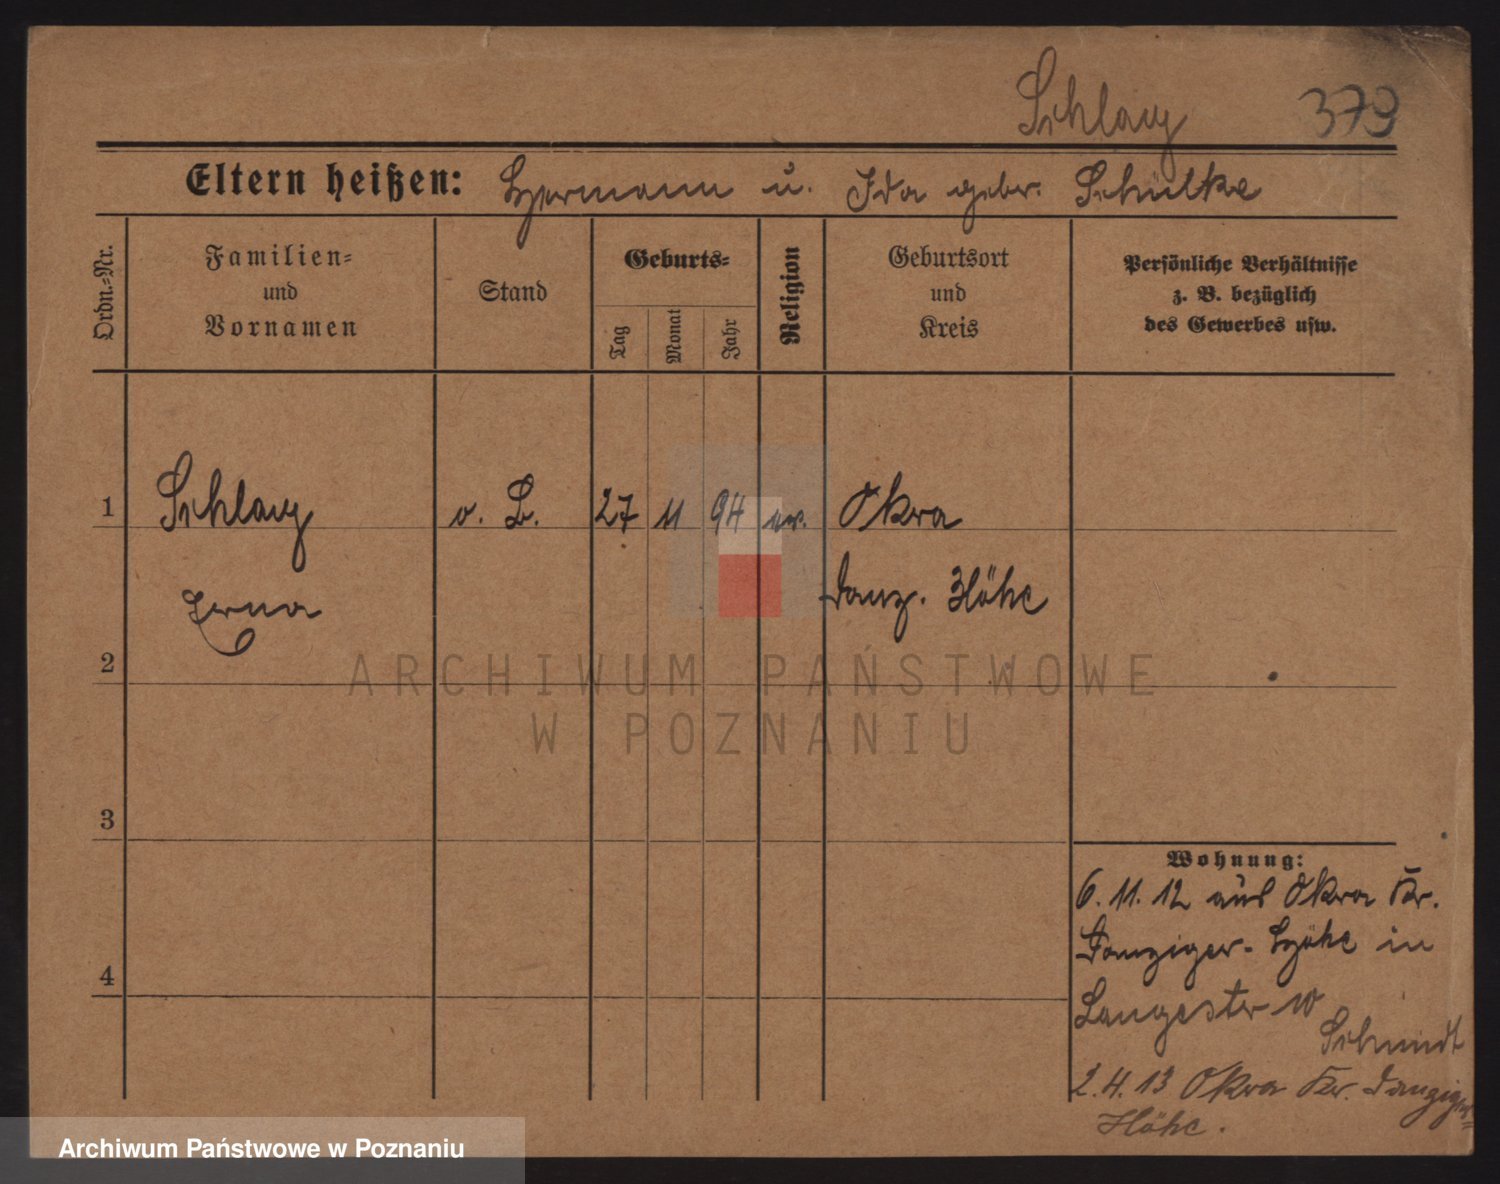 Schlaw 379
Eltern heißen: Hermann u. Ida gebr. Schülke
Ordn.-Nr.
Familien-
und
Vornamen
Stand
Geburts-
Tag
Monat
Jahr
Religion
Geburtsort
und
Kreis
Persönliche Verhältnisse
z. B. bezüglich
des Gewerbes usw.
1 Schlaw o. B. 27 11 94 ev. Okra
Erna Danz. Höhe
2
ARCHIWUM PAŃSTWOWE
W POZNANIU
3
Wohnung:
6. 11. 12 aus Okra Kr.
Danziger-Höhe in
4
Langestr 10
Schmidt
2.4.13 Okra Kr. Danziger=
Höhe.
Archiwum Państwowe w Poznaniu